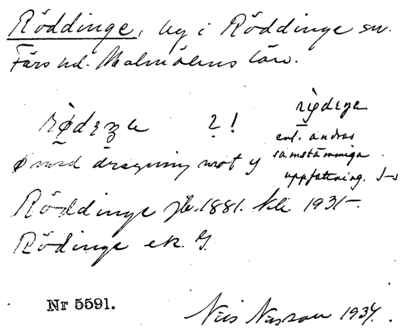 Röddinge, by i Röddinge sn.
Färs hd. Malmöhus län.
rø̀dɪŋa ?!
rỳdɪŋa
enl. andras
samstämmiga
uppfattning.
ø med dragning mot y
Röddinge jb. 1881. kli 1931–
Rödinge ek. G.
Nr 5591.
Nils Nilsson 1934.